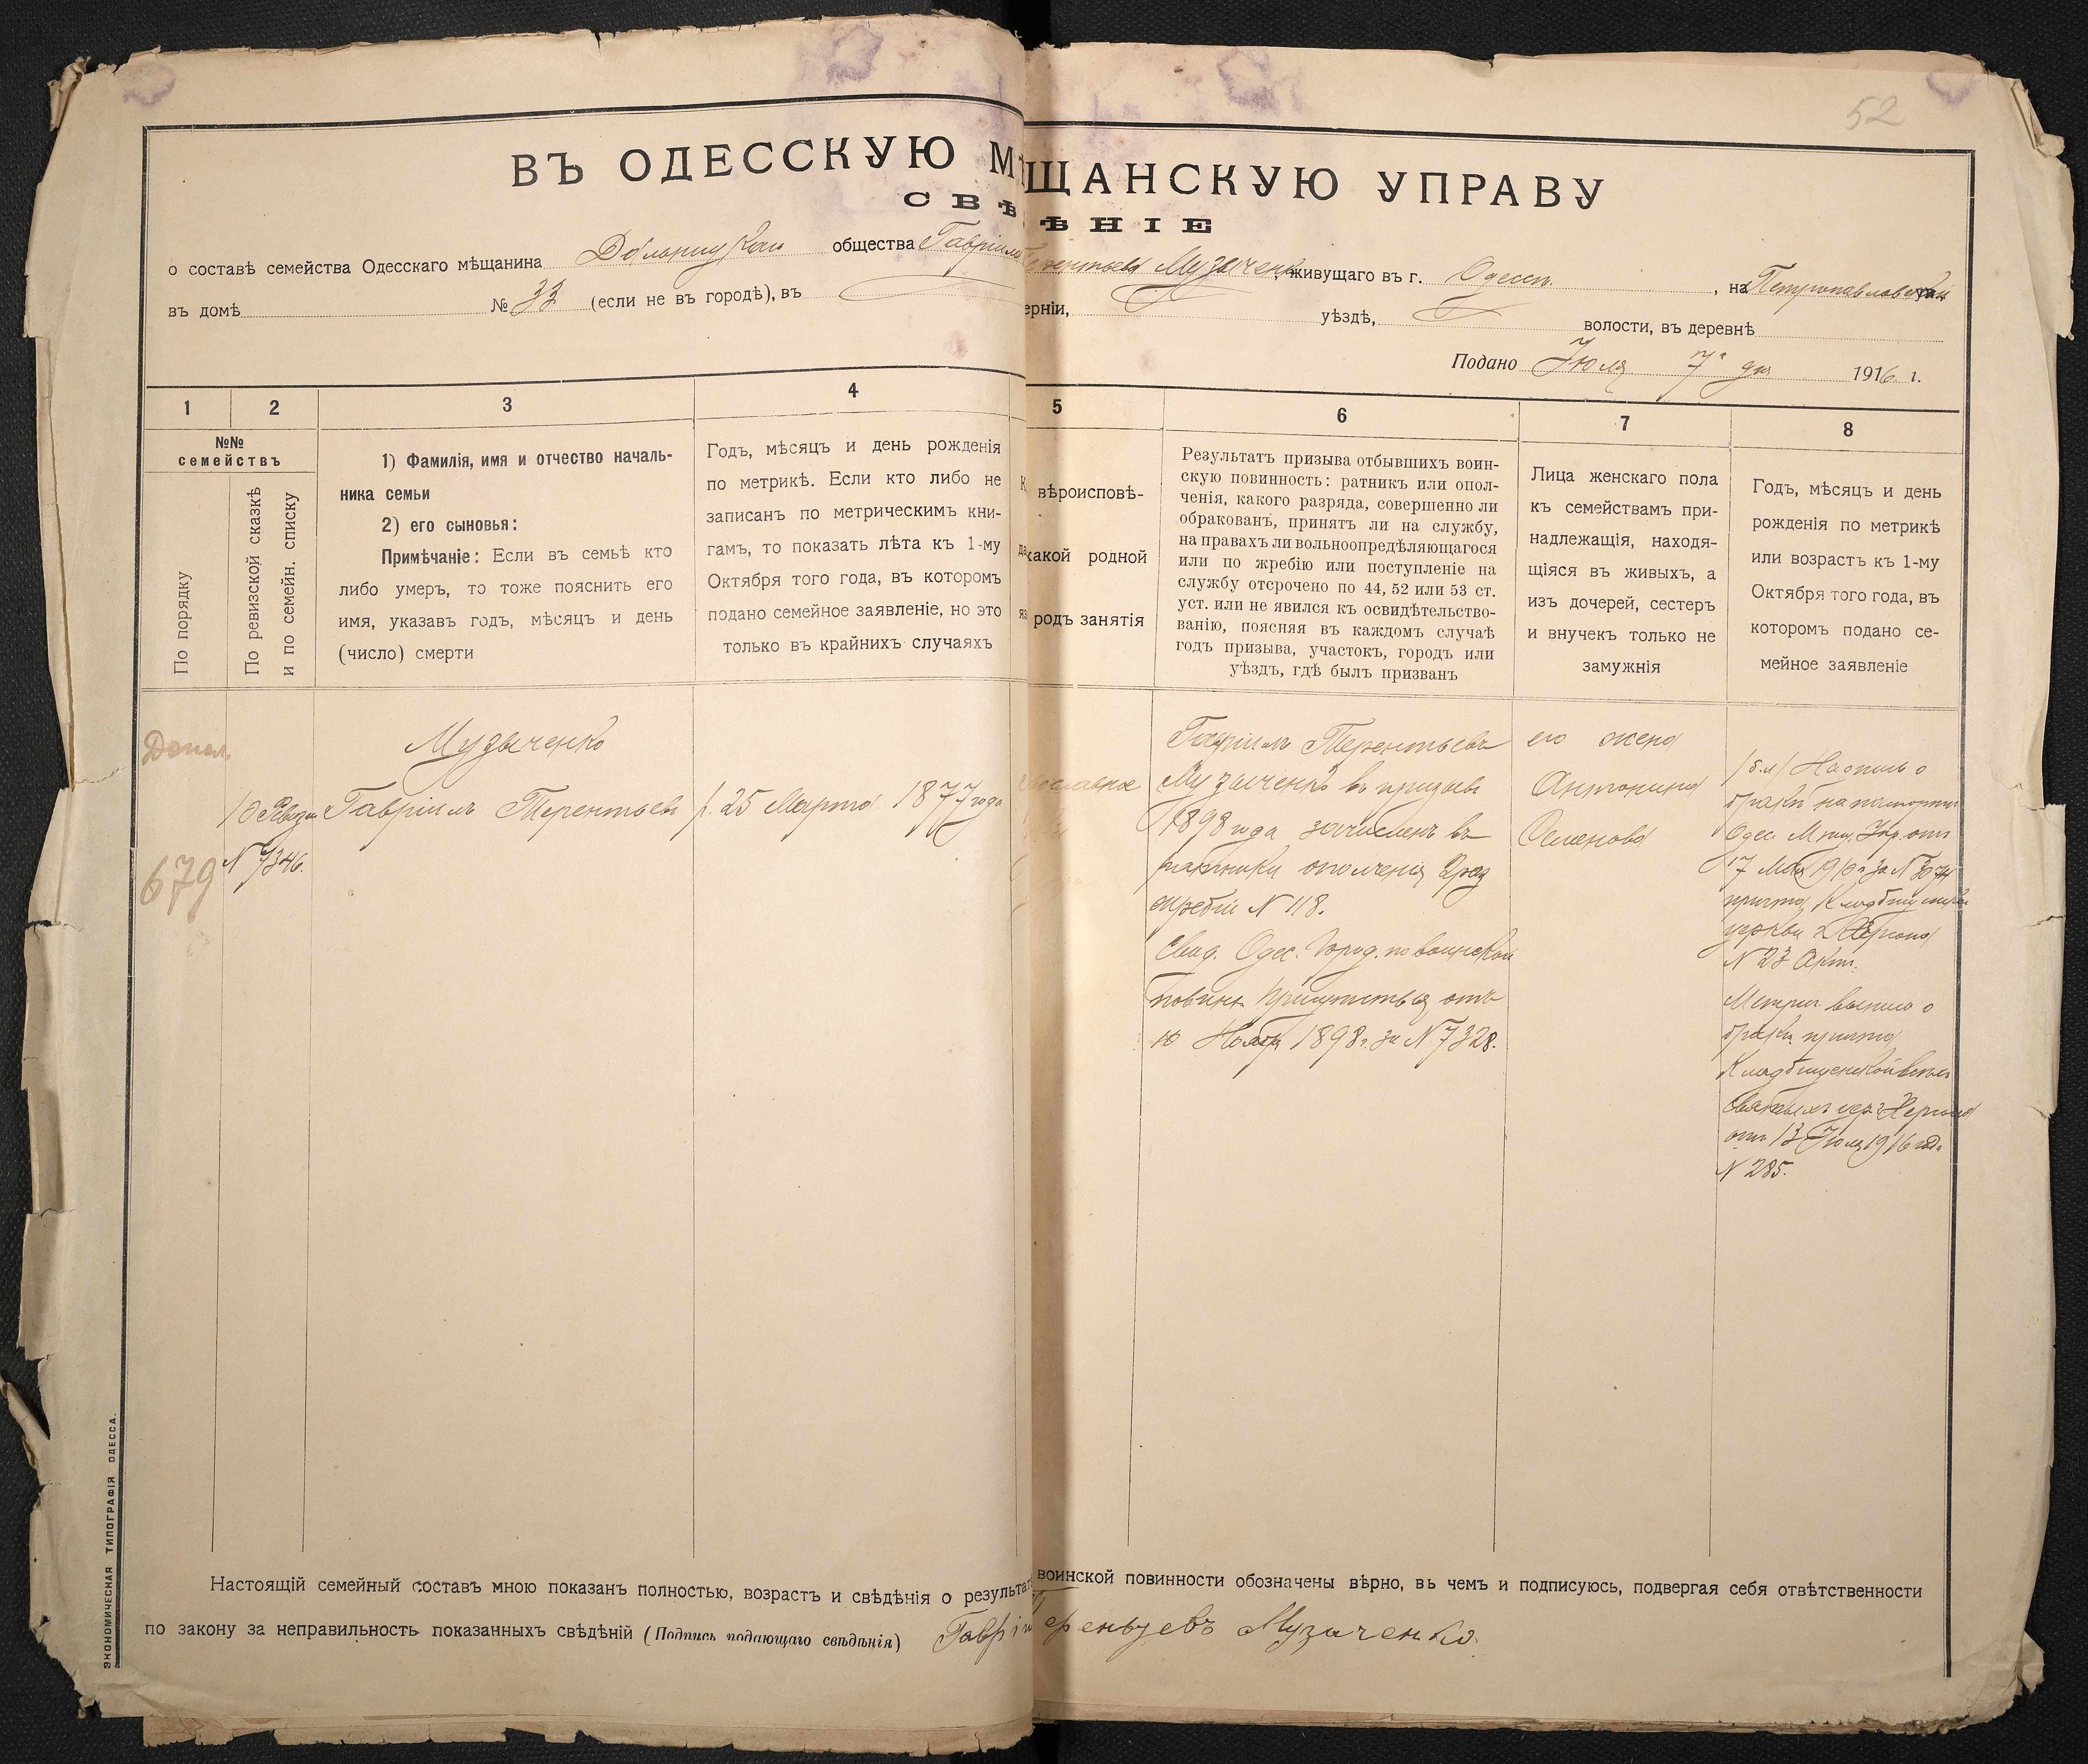 52
ВЪ ОДЕССКУЮ МѢЩАНСКУЮ УПРАВУ
СВѢДѢНІЕ
о составѣ семейства Одесскаго мѣщанина общества Гавріила Терентьева Музыченко, живущаго въ г. Одессѣ, на Петропавловской
въ домѣ № 33 (если не въ городѣ), въ
ерніи, уѣздѣ, волости, въ деревнѣ
Подано Іюля 7 дня 1916 г.
1 2 3 4 5 6 7 8
№№
семействъ
По порядку
По ревизской сказкѣ
и по семейн. списку
1) Фамилія, имя и отчество началь-
ника семьи
2) его сыновья:
Примѣчаніе: Если въ семьѣ кто
либо умеръ, то тоже пояснить его
имя, указавъ годъ, мѣсяцъ и день
(число) смерти
Годъ, мѣсяцъ и день рожденія
по метрикѣ. Если кто либо не
записанъ по метрическимъ кни-
гамъ, то показать лѣта къ 1-му
Октября того года, въ которомъ
подано семейное заявленіе, но это
только въ крайнихъ случаяхъ
вѣроисповѣ-
какой родной
родъ занятія
Результатъ призыва отбывшихъ воин-
скую повинность: ратникъ или опол-
ченія, какого разряда, совершенно ли
обракованъ, принятъ ли на службу,
на правахъ ли вольноопредѣляющагося
или по жребію или поступленіе на
службу отсрочено по 44, 52 или 53 ст.
уст. или не явился къ освидѣтельство-
ванію, поясняя въ каждомъ случаѣ
годъ призыва, участокъ, городъ или
уѣздъ, гдѣ былъ призванъ
Лица женскаго пола
къ семействамъ при-
надлежащія, находя-
щіяся въ живыхъ, а
изъ дочерей, сестеръ
и внучекъ только не
замужнія
Годъ, мѣсяцъ и день
рожденія по метрикѣ
или возрастъ къ 1-му
Октября того года, въ
которомъ подано се-
мейное заявленіе
Допол.
679
10 Ревизіи
N 7346.
Музыченко
Гавріилъ Терентьевъ
р. 25 Марта 1877 года
Гавріилъ Терентьевъ
Музыченко въ призывъ
1898 года зачисленъ въ
ратники ополченія 2 раз
жребій N 118.
Свид. Одес. Город. по воинской
повин. Присутствія отъ
10 Ноября 1898 г. за N 7328.
его жена
Антонина
Семенова
/б.м/ Надпись о
бракѣ на паспортѣ
Одес. Мѣщ. Упр. отъ
причта Кладбищенской
церкви г. Херсона
N 23 Акт.
Метрич выпись о
бракѣ причта
Кладбищенской Всѣхъ
Святыхъ цер. г. Херсона
отъ 13 Іюля 1916 года
N 285.
Настоящій семейный составъ мною показанъ полностью, возрастъ и свѣдѣнія о результат воинской повинности обозначены вѣрно, въ чемъ и подписуюсь, подвергая себя отвѣтственности
по закону за неправильность показанныхъ свѣдѣній (Подпись подающаго свѣдѣнія) Гаврі ереньтьевъ Музыченко.
ЭКОНОМИЧЕСКАЯ ТИПОГРАФІЯ ОДЕССА.